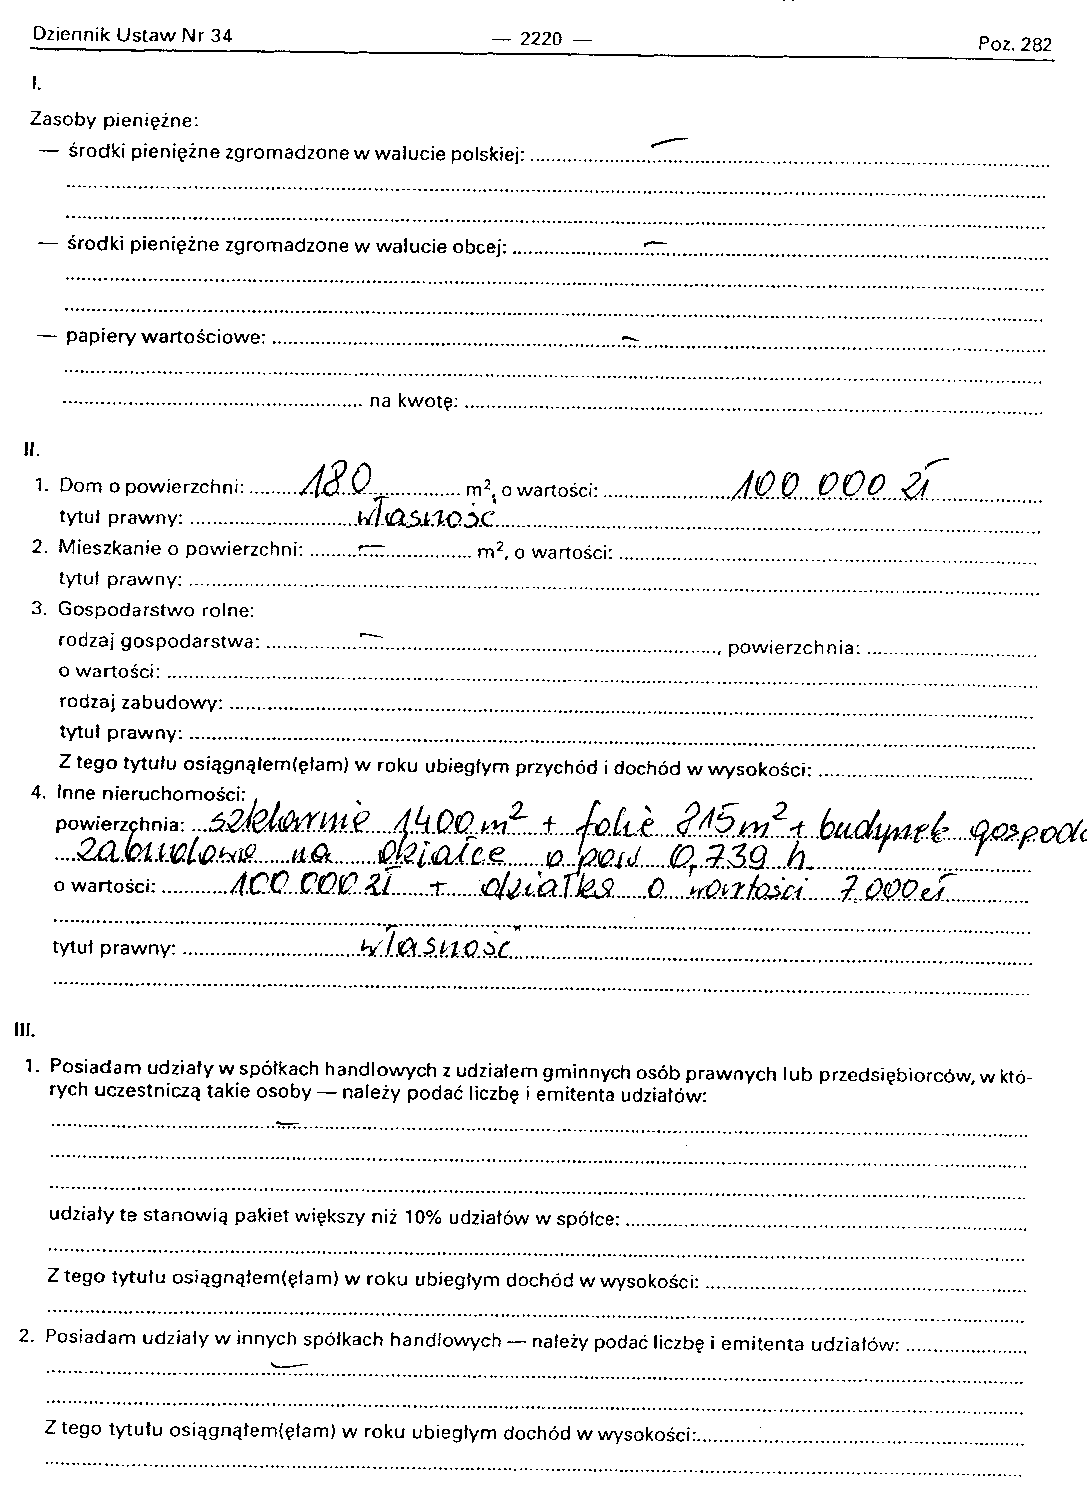 Dziennik Ustaw Nr 34 — 2220 — Poz. 282
I.
Zasoby pieniężne:
— środki pieniężne zgromadzone w walucie polskiej: —
— środki pieniężne zgromadzone w walucie obcej: —
— papiery wartościowe: —
na kwotę:
II.
1. Dom o powierzchni: 180 m², o wartości: 100 000 zł
tytuł prawny: własność
2. Mieszkanie o powierzchni: — m², o wartości:
tytuł prawny:
3. Gospodarstwo rolne:
rodzaj gospodarstwa: —, powierzchnia:
o wartości:
rodzaj zabudowy:
tytuł prawny:
Z tego tytułu osiągnąłem(ęłam) w roku ubiegłym przychód i dochód w wysokości:
4. Inne nieruchomości:
powierzchnia: szklarnie 1400 m² + folie 815 m² + budynek gospoda
zabudowie na działce o pow 0,739 h
o wartości: 100 000 zł + działka o wartości 7 000 zł
tytuł prawny: własność
III.
1. Posiadam udziały w spółkach handlowych z udziałem gminnych osób prawnych lub przedsiębiorców, w któ-
rych uczestniczą takie osoby — należy podać liczbę i emitenta udziałów:
—
udziały te stanowią pakiet większy niż 10% udziałów w spółce:
Z tego tytułu osiągnąłem(ęłam) w roku ubiegłym dochód w wysokości:
2. Posiadam udziały w innych spółkach handlowych — należy podać liczbę i emitenta udziałów:
—
Z tego tytułu osiągnąłem(ęłam) w roku ubiegłym dochód w wysokości: